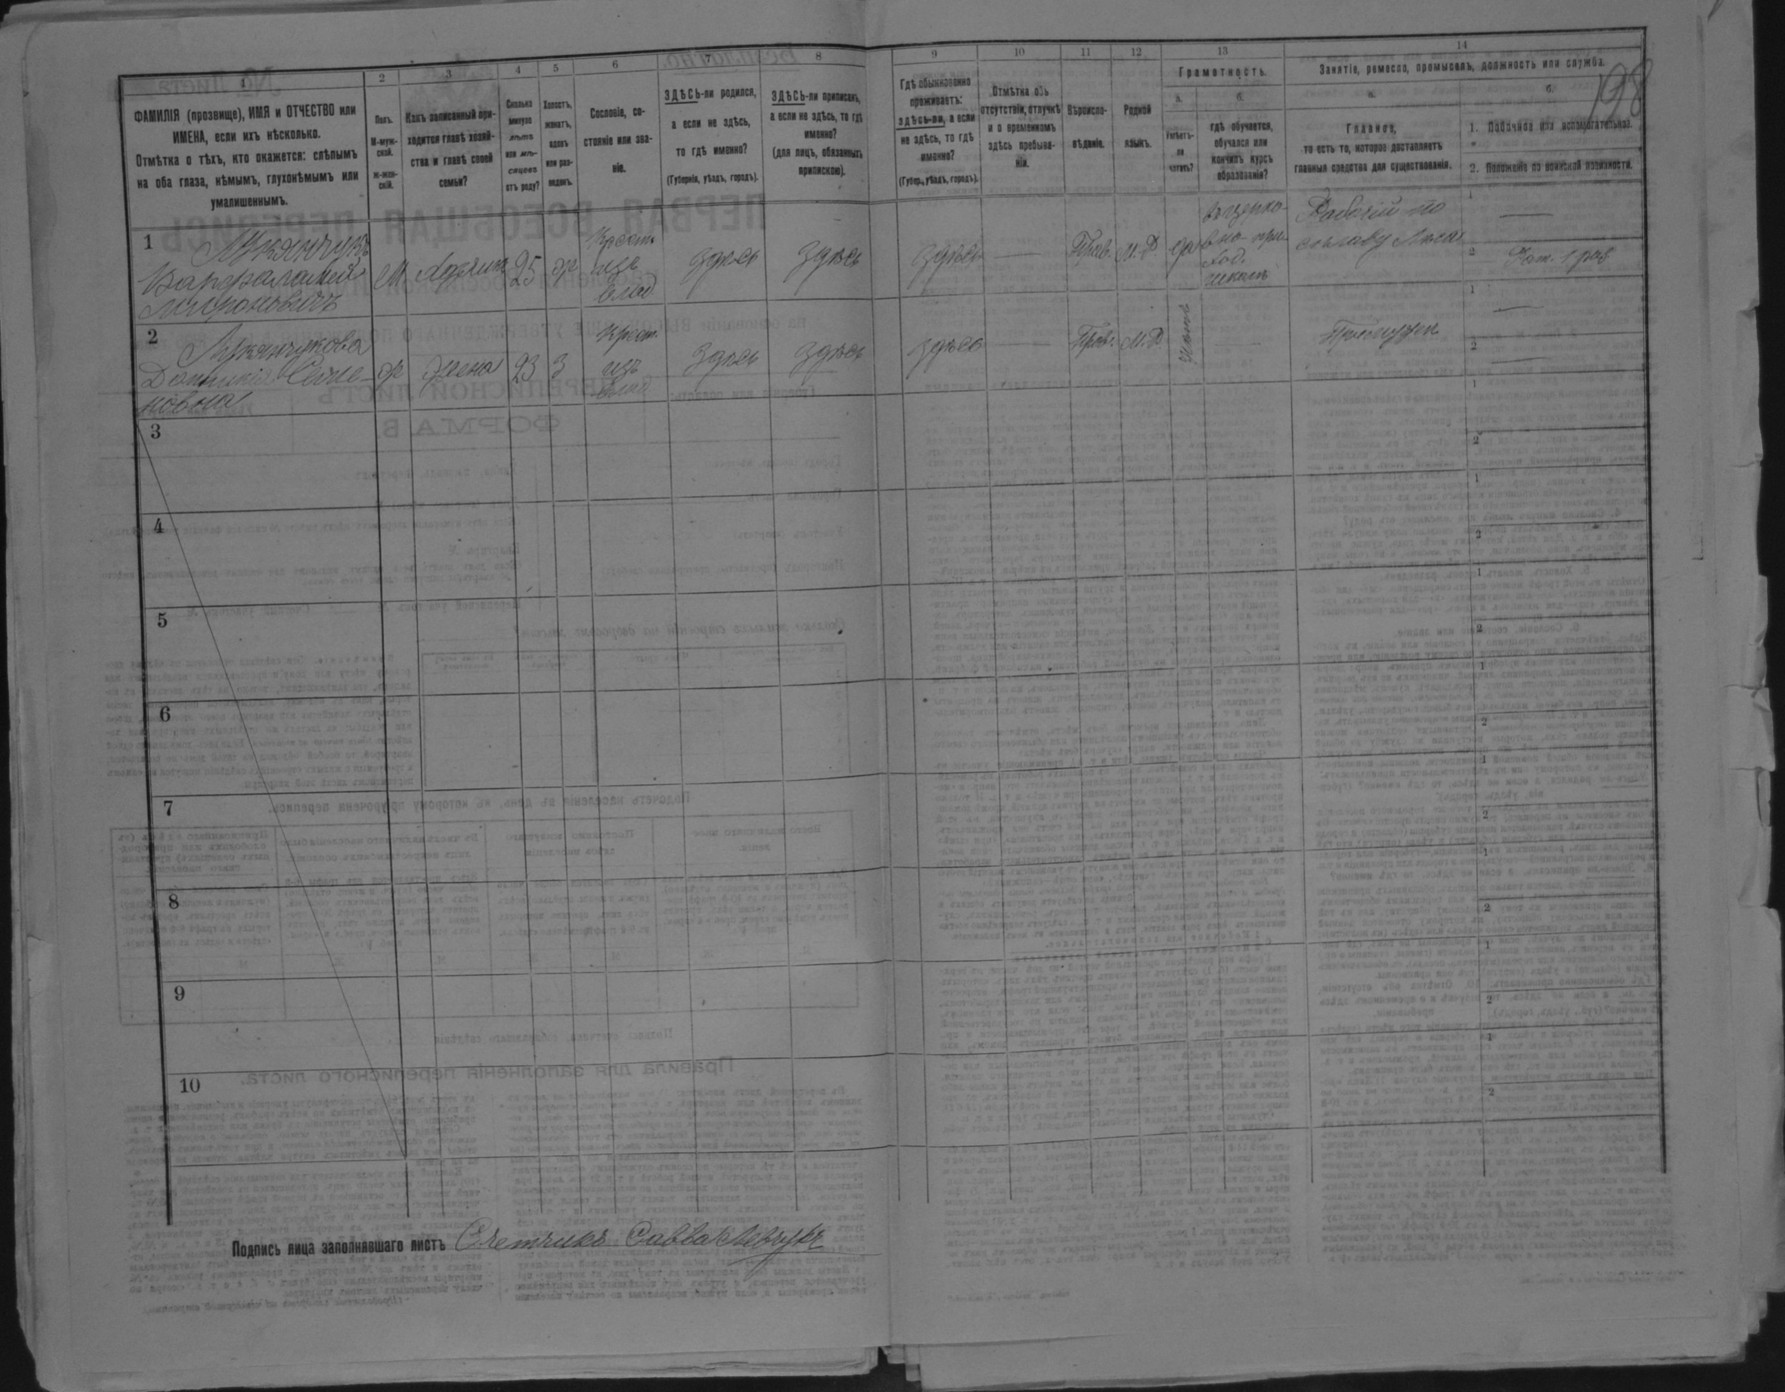 198
1
2
3
4
5
6
7
8
9
10
11
12
13
14
ФАМИЛІЯ (прозвище), ИМЯ и ОТЧЕСТВО или
ИМЕНА, если ихъ нѣсколько.
Отмѣтка о тѣхъ, кто окажется: слѣпымъ
на оба глаза, нѣмымъ, глухонѣмымъ или
умалишеннымъ.
Полъ.
М-муж-
ской.
Ж-жен-
скій.
Какъ записанный при-
ходится главѣ хозяй-
ства и главѣ своей
семьи?
Сколько
минуло
лѣтъ
или мѣ-
сяцевъ
отъ роду?
Холостъ,
женатъ,
вдовъ
или раз-
веденъ.
Сословіе, со-
стояніе или зва-
ніе.
ЗДѢСЬ-ли родился,
а если не здѣсь,
то гдѣ именно?
(Губернія, уѣздъ, городъ).
ЗДѢСЬ-ли приписанъ,
а если не здѣсь, то гдѣ
именно?
(для лицъ, обязанныхъ
припискою).
Гдѣ обыкновенно
проживаетъ:
здѣсь-ли, а если
не здѣсь, то гдѣ
именно?
(Губер., уѣздъ, городъ).
Отмѣтка объ
отсутствіи, отлучкѣ
и о временномъ
здѣсь пребыва-
ніи.
Вѣроиспо-
вѣданіе.
Родной
языкъ.
Грамотность.
а.
Умѣетъ-
ли
читать?
б.
гдѣ обучается,
обучался или
кончилъ курсъ
образованія?
Занятіе, ремесло, промыселъ, должность или служба.
а.
Главное,
то есть то, которое доставляетъ
главныя средства для существованія.
б.
1. Побочное или вспомогательное.
2. Положеніе по воинской повинности.
1
Лукянчукъ
Варфаламей
Мироновичъ
М
Хозяинъ
25
ж
Крест.
изъ
влад
здѣсь
здѣсь
здѣсь
—
Прав.
М.Р.
гр
въ церко-
вно-при-
ход.
школѣ
Рабочій по
сплаву лѣса
1
—
2
Рат. 1 раз.
2
Лукянчукова
Домникія Семе-
новна
ж
жена
23
з
Крест.
изъ
влад
здѣсь
здѣсь
здѣсь
—
Прав.
М.Р.
—
При мужѣ
1
—
2
—
3
1
2
4
1
2
5
1
2
6
1
2
7
1
2
8
1
2
9
1
2
10
1
2
Подпись лица заполнявшаго листъ Счетчикъ Савва Левчукъ